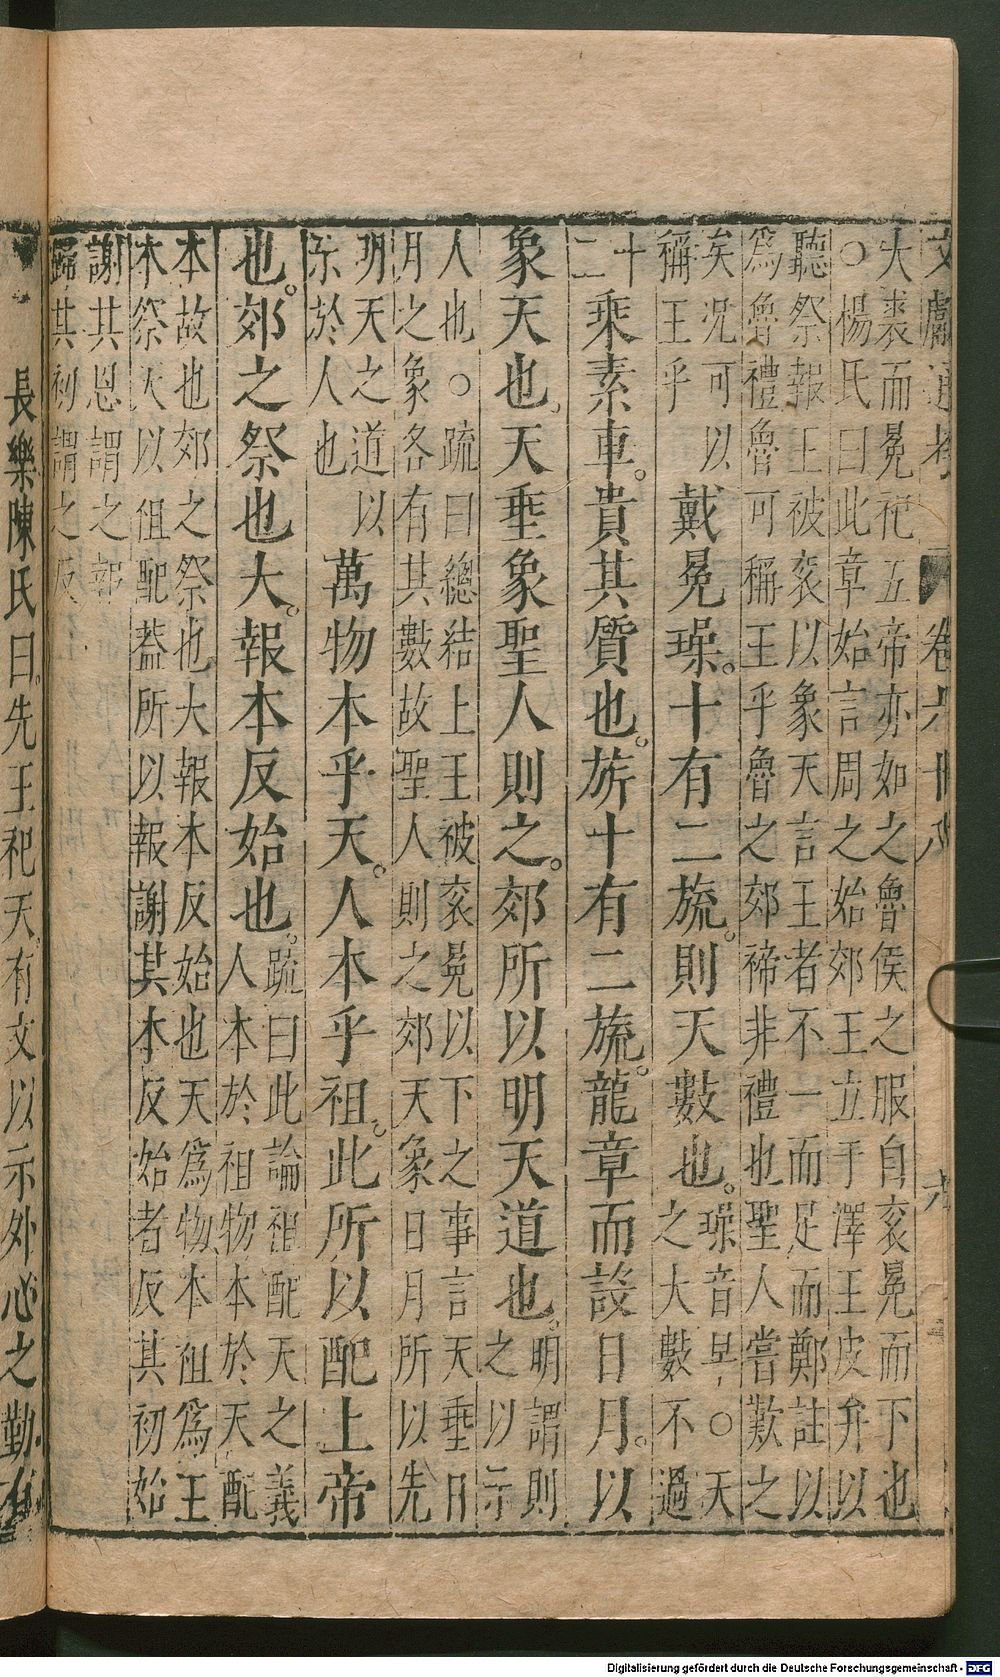 文獻通考 卷六十八 九
大裘而冕祀五帝亦如之魯侯之服自衮冕而下也
○楊氏曰此章始言周之始郊王立于澤王皮弁以
聽祭報王被衮以象天言王者不一而足而鄭註以
爲魯禮魯可稱王乎魯之郊禘非禮也聖人嘗歎之
矣況可以
稱王乎
戴冕璪十有二旒則天數也
璪音早○天
之大數不過
十
二
乘素車貴其質也旂十有二旒龍章而設日月以
象天也天垂象聖人則之郊所以明天道也
明謂則
之以示
人也○疏曰總結上王被衮冕以下之事言天垂日
月之象各有其數故聖人則之郊天象日月所以先
明天之道以
示於人也
萬物本乎天人本乎祖此所以配上帝
也郊之祭也大報本反始也
疏曰此論祖配天之義
人本於祖物本於天配
本故也郊之祭也大報本反始也天爲物本祖爲王
本祭天以祖配葢所以報謝其本反始者反其初始
謝其恩謂之報
歸其初謂之反
長樂陳氏曰先王祀天有文以示外心之勤有
Digitalisierung gefördert durch die Deutsche Forschungsgemeinschaft - DFG